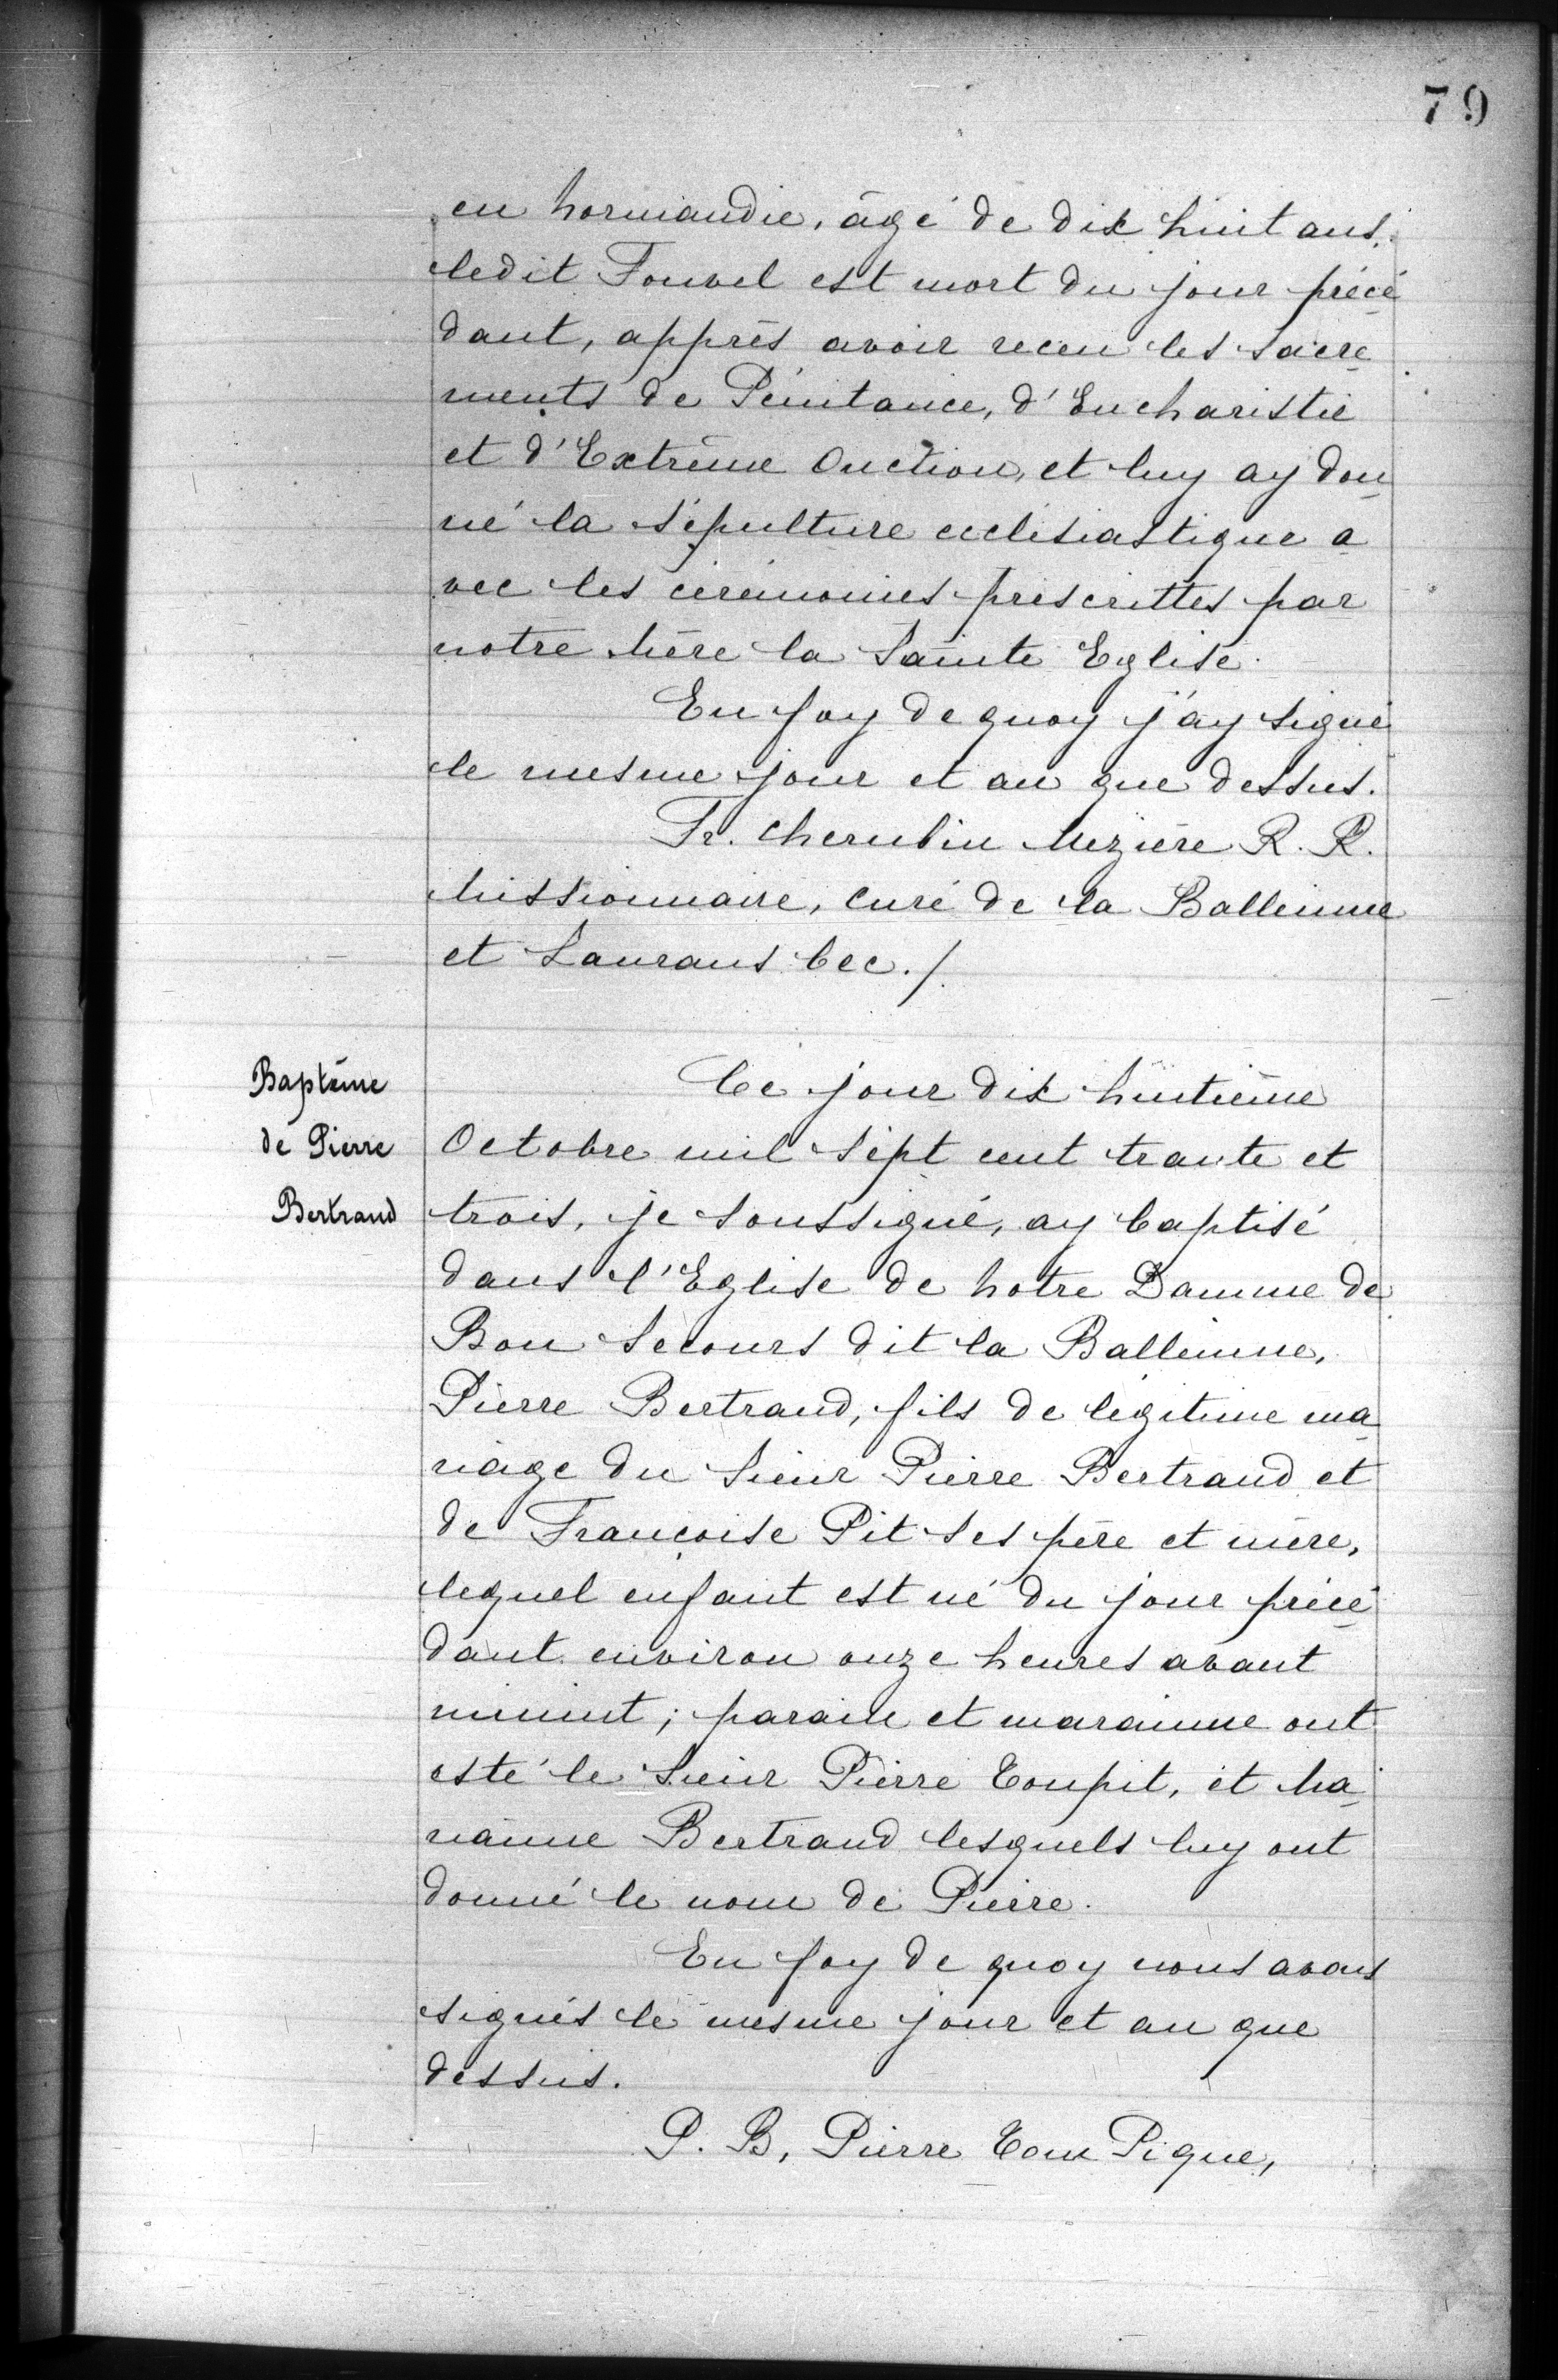 79
en Normandie, âgé de dix huit ans,
ledit Fouvel est mort du jour précé
dant, apprès avoir receu les Sacre
ments de Pénitance, d'Eucharistie
et d'Extrême Onction, et luy ay don
né la sépulture ecclésiastique a
vec les cérémonies prescrittes par
notre Mère la Sainte Eglise.
En foy de quoy j'ay signé
le mesme jour et an que dessus.
Fr. Cherubin Mezière R. R.
Missionnaire, Curé de la Balleinne
et Laurans bec./.
Baptême
de Pierre
Bertrand
Ce jour dix huitième
Octobre mil sept cent trante et
trois, je soussigné, ay baptisé
dans l'Eglise de Notre Damme de
Bon Secours dit la Balleinne,
Pierre Bertrand, fils de légitime ma
riage du Sieur Pierre Bertrand et
de Françoise Pit ses père et mère,
lequel enfant est né du jour précé
dant environ onze heures avant
minuit; parain et marainne ont
esté le Sieur Pierre Coupit, et Ma
rianne Bertrand lesquels luy ont
donné le nom de Pierre.
En foy de quoy nous avons
signés le mesme jour et an que
dessus.
P. B, Pierre Cou Pique,